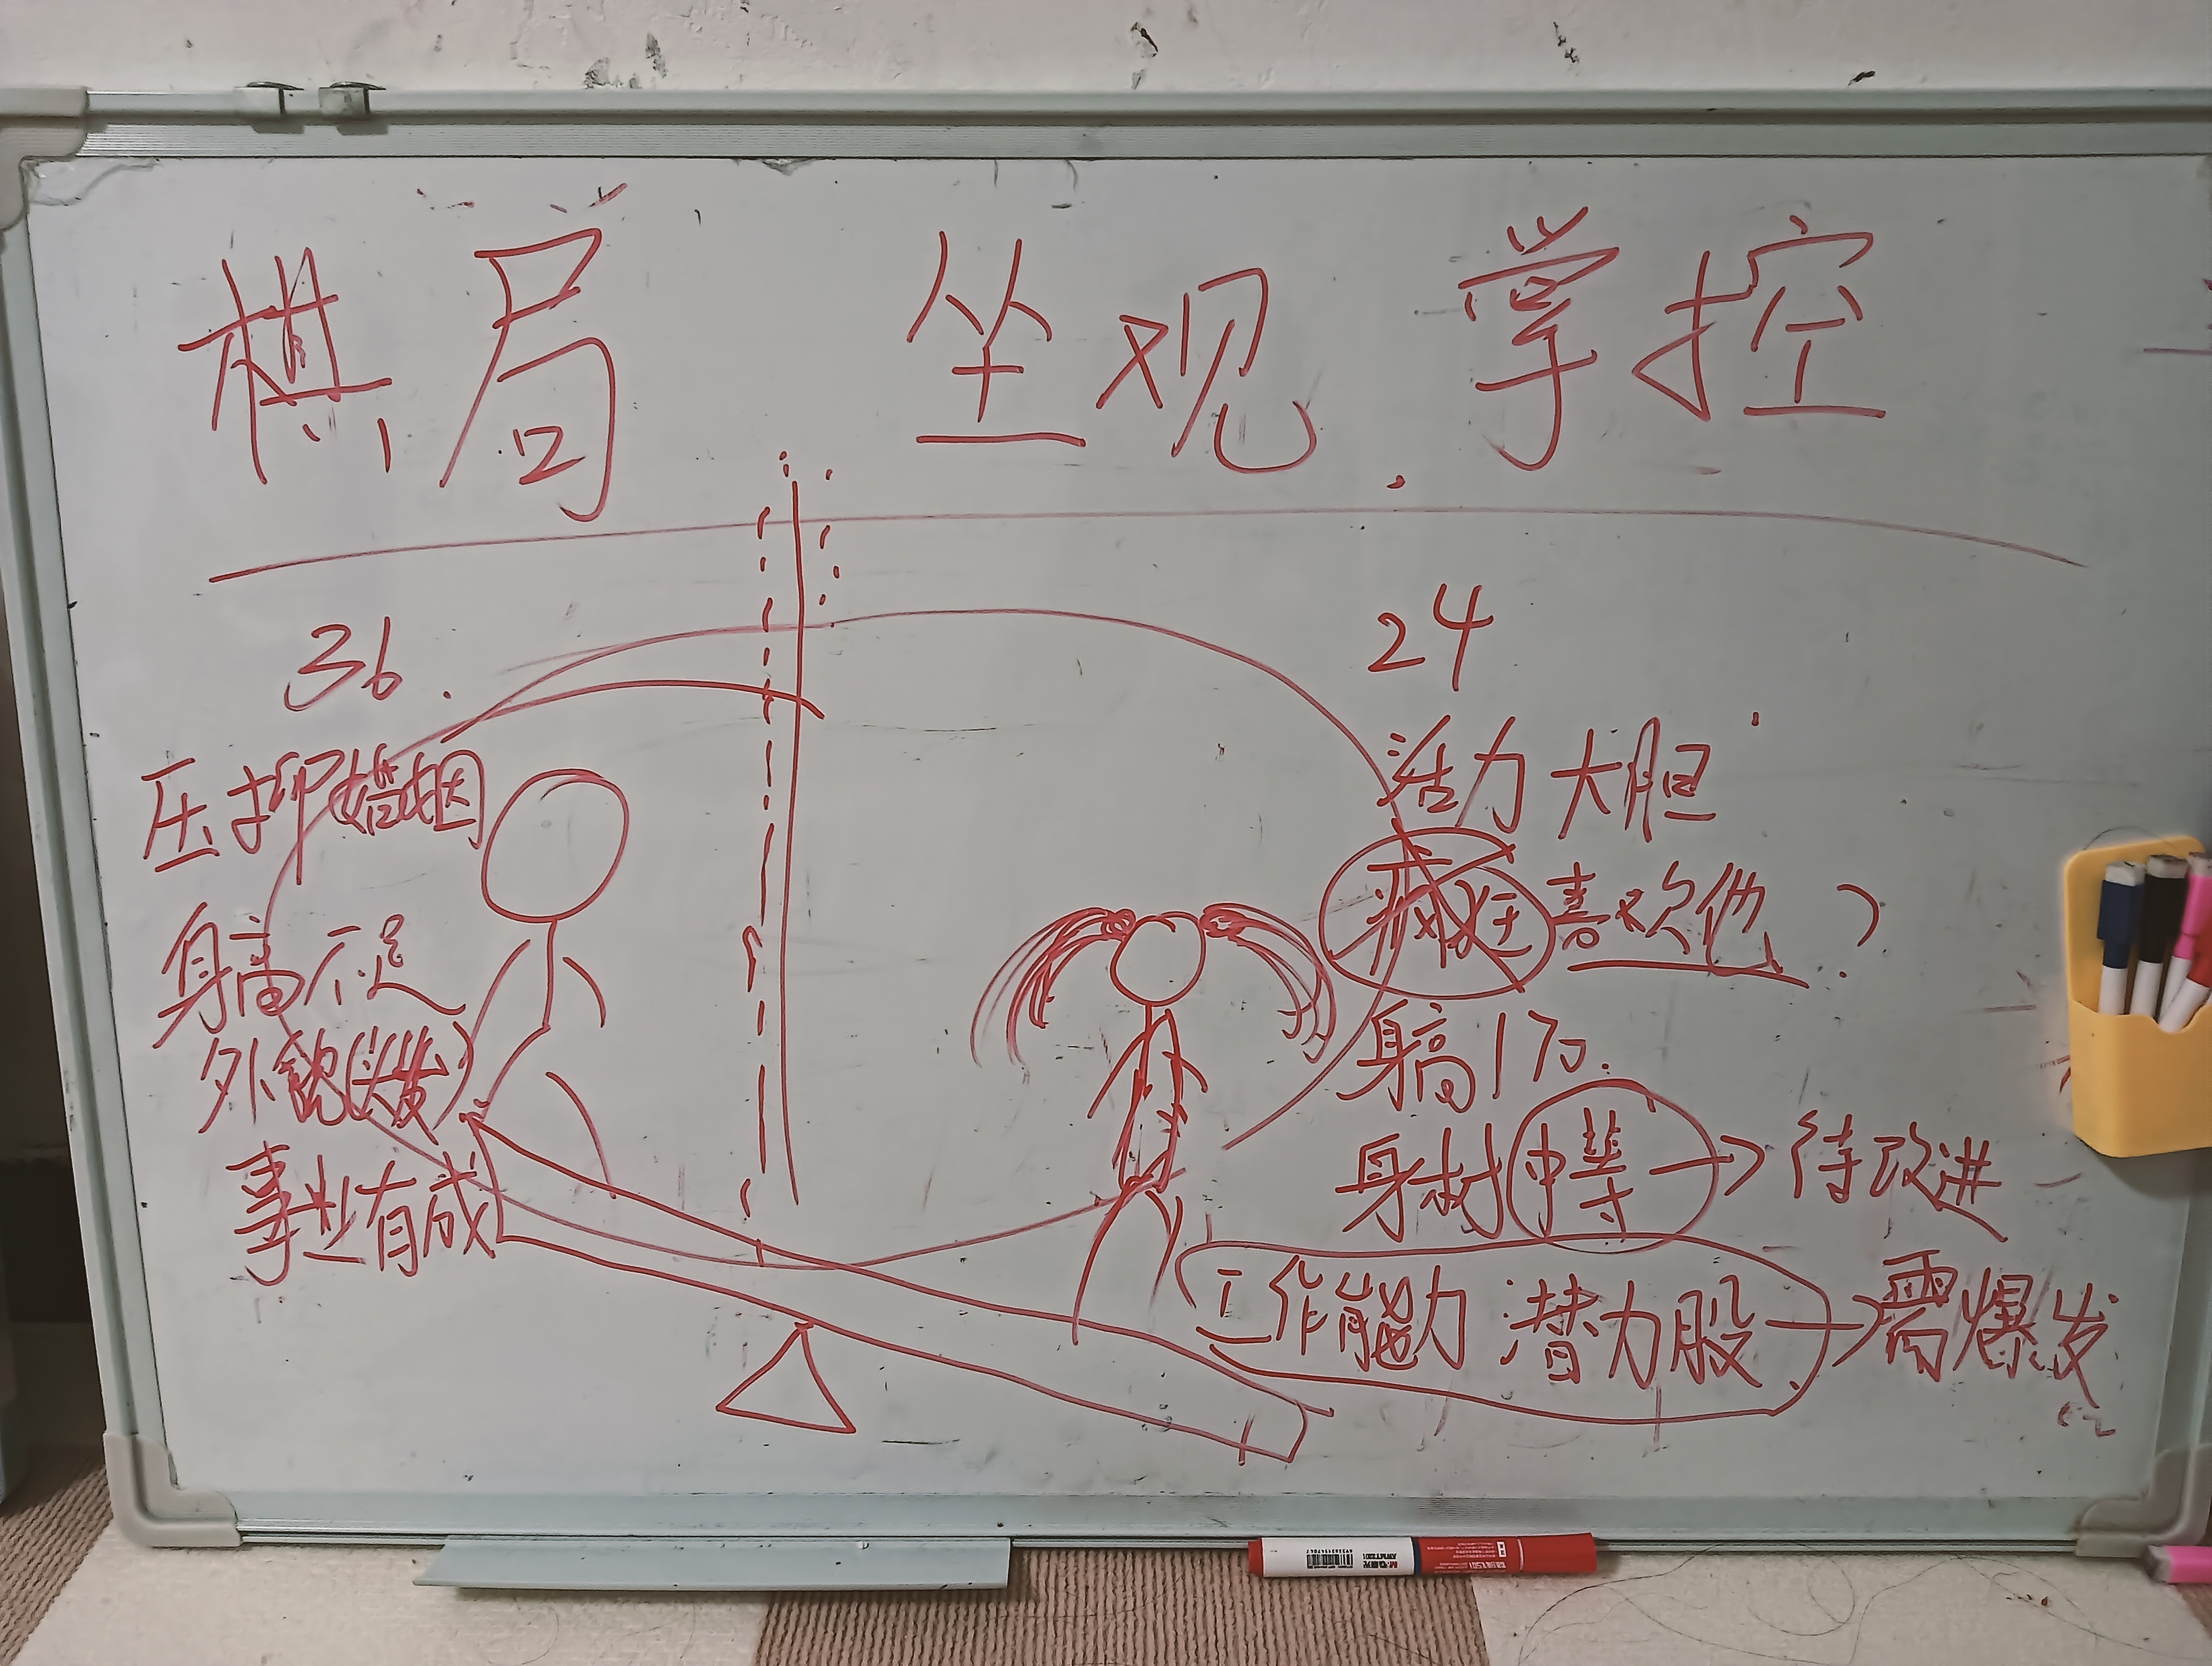 棋局 坐观 掌控
36.
压抑婚姻
身高不足
外貌(头发)
事业有成
24
活力 大胆
疯狂 喜欢他?
身高170.
身材中等→待改进
工作能力 潜力股→需爆发